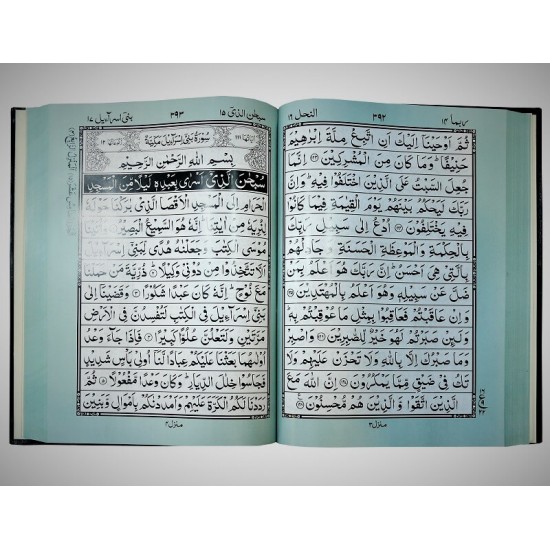 ربما ١٤
٣٩٢
النحل ١٦
ثُمَّ اَوْحَيْنَاۤ اِلَيْكَ اَنِ اتَّبِعْ مِلَّةَ اِبْرٰهِيْمَ
حَنِيْفًا ؕ وَمَا كَانَ مِنَ الْمُشْرِكِيْنَ ﴿۱۲۳﴾ اِنَّمَا
جُعِلَ السَّبْتُ عَلَى الَّذِيْنَ اخْتَلَفُوْا فِيْهِ ؕ وَاِنَّ
رَبَّكَ لَيَحْكُمُ بَيْنَهُمْ يَوْمَ الْقِيٰمَةِ فِيْمَا كَانُوْا
فِيْهِ يَخْتَلِفُوْنَ ﴿۱۲۴﴾ اُدْعُ اِلٰى سَبِيْلِ رَبِّكَ
بِالْحِكْمَةِ وَالْمَوْعِظَةِ الْحَسَنَةِ وَجَادِلْهُمْ
بِالَّتِيْ هِيَ اَحْسَنُ ؕ اِنَّ رَبَّكَ هُوَ اَعْلَمُ بِمَنْ
ضَلَّ عَنْ سَبِيْلِهٖ وَهُوَ اَعْلَمُ بِالْمُهْتَدِيْنَ ﴿۱۲۵﴾
وَاِنْ عَاقَبْتُمْ فَعَاقِبُوْا بِمِثْلِ مَا عُوْقِبْتُمْ بِهٖ ؕ
وَلَئِنْ صَبَرْتُمْ لَهُوَ خَيْرٌ لِّلصّٰبِرِيْنَ ﴿۱۲۶﴾ وَاصْبِرْ
وَمَا صَبْرُكَ اِلَّا بِاللّٰهِ وَلَا تَحْزَنْ عَلَيْهِمْ وَلَا
تَكُ فِيْ ضَيْقٍ مِّمَّا يَمْكُرُوْنَ ﴿۱۲۷﴾ اِنَّ اللّٰهَ مَعَ
الَّذِيْنَ اتَّقَوْا وَّالَّذِيْنَ هُمْ مُّحْسِنُوْنَ ﴿۱۲۸﴾
منزل ٣
سبحٰن الذی ١٥
٣٩٣
بنی اسرآءیل ١٧
سُوْرَةُ بَنِيْۤ اِسْرَآءِيْلَ مَكِّيَّةٌ
بِسْمِ اللّٰهِ الرَّحْمٰنِ الرَّحِيْمِ
سُبْحٰنَ الَّذِيْۤ اَسْرٰى بِعَبْدِهٖ لَيْلًا مِّنَ الْمَسْجِدِ
الْحَرَامِ اِلَى الْمَسْجِدِ الْاَقْصَا الَّذِيْ بٰرَكْنَا حَوْلَهٗ
لِنُرِيَهٗ مِنْ اٰيٰتِنَا ؕ اِنَّهٗ هُوَ السَّمِيْعُ الْبَصِيْرُ ﴿۱﴾ وَاٰتَيْنَا
مُوْسَى الْكِتٰبَ وَجَعَلْنٰهُ هُدًى لِّبَنِيْۤ اِسْرَآءِيْلَ
اَلَّا تَتَّخِذُوْا مِنْ دُوْنِيْ وَكِيْلًا ﴿۲﴾ ذُرِّيَّةَ مَنْ حَمَلْنَا
مَعَ نُوْحٍ ؕ اِنَّهٗ كَانَ عَبْدًا شَكُوْرًا ﴿۳﴾ وَقَضَيْنَاۤ اِلٰى
بَنِيْۤ اِسْرَآءِيْلَ فِي الْكِتٰبِ لَتُفْسِدُنَّ فِي الْاَرْضِ
مَرَّتَيْنِ وَلَتَعْلُنَّ عُلُوًّا كَبِيْرًا ﴿۴﴾ فَاِذَا جَآءَ وَعْدُ
اُوْلٰىهُمَا بَعَثْنَا عَلَيْكُمْ عِبَادًا لَّنَاۤ اُولِيْ بَاْسٍ شَدِيْدٍ
فَجَاسُوْا خِلٰلَ الدِّيَارِ ؕ وَكَانَ وَعْدًا مَّفْعُوْلًا ﴿۵﴾ ثُمَّ
رَدَدْنَا لَكُمُ الْكَرَّةَ عَلَيْهِمْ وَاَمْدَدْنٰكُمْ بِاَمْوَالٍ وَّبَنِيْنَ
منزل ٤